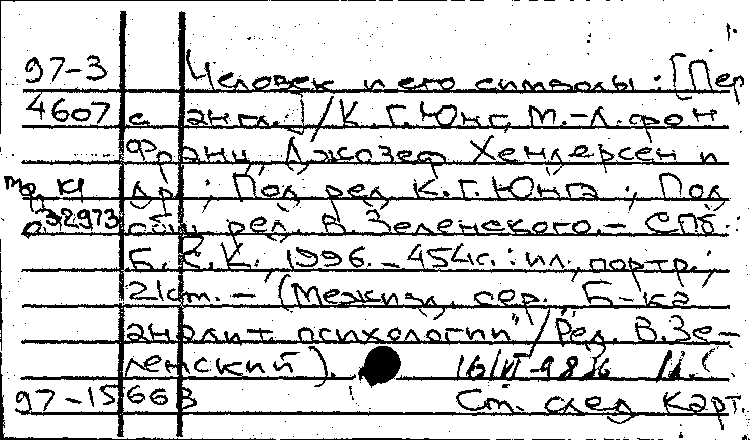 97-3 Человек и его символы : [Пер
4607 с англ.] / К. Г. Юнг, М.-Л. фон
Франц, Джозеф Хендерсен и
др. ; Под ред. К.Г. Юнга ; Под
32973 общ. ред. В. Зеленского. – СПб.:
Б.С.К., 1996. – 454с. : ил., портр. ;
21см. – (Межизд. сер. "Б-ка
аналит. психологии" / Ред. В. Зе-
ленский).
97-15663 См. след карт.